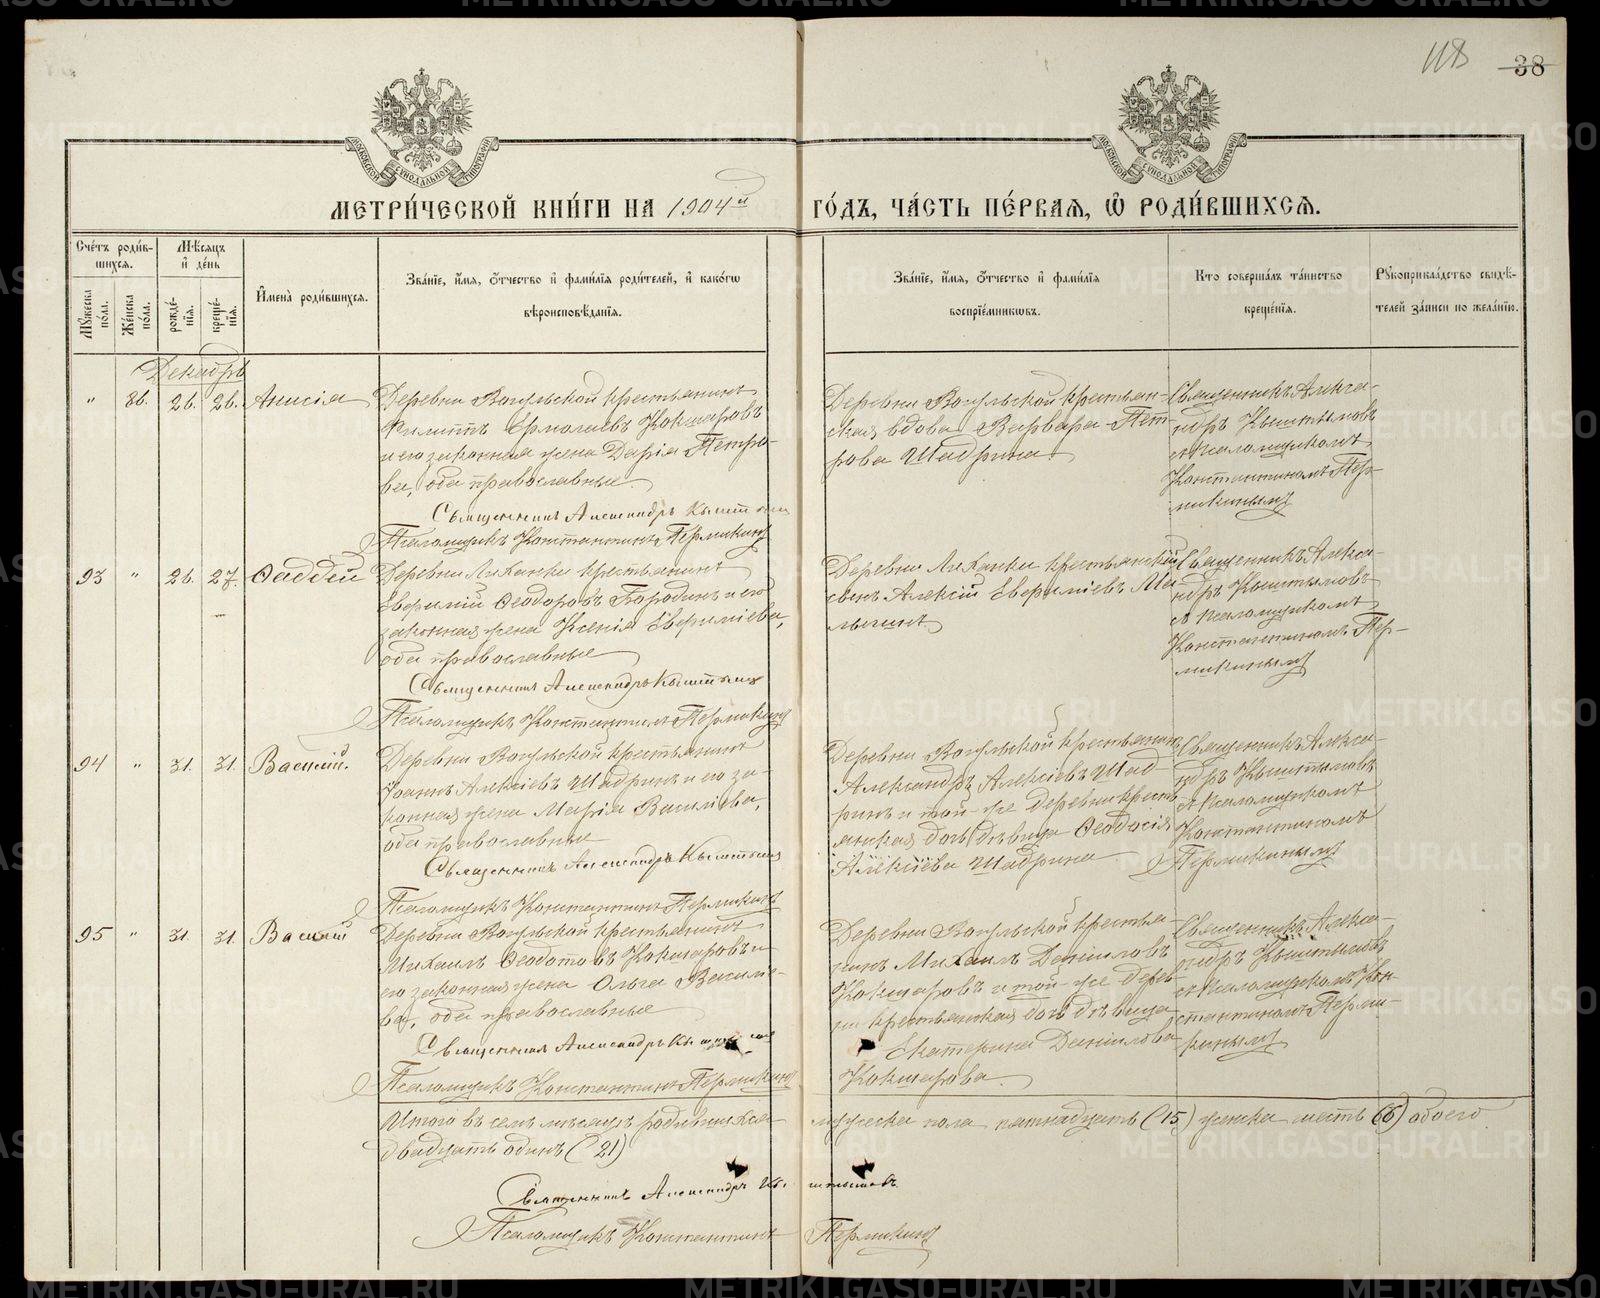 118 38
МЕТРИ́ЧЕСКОЙ КНИ́ГИ НА 1904й ГО́ДЪ, ЧА́СТЬ ПЕ́РВАЯ, Ѽ РОДИ́ВШИХСЯ.
Сче́тъ роди́в-
шихся.
Мꙋжеска по́ла.
Же́нска по́ла.
Мѣ́сяцъ и҆ де́нь
рожде́-
нїя.
креще́-
нїя.
И҆мена̀ роди́вшихся.
Зва́нїе, и҆́мя, ѻ҆́тчество и҆ фами́лїя роди́телей, и҆ како́гѡ
вѣроисповѣ́данїя.
Зва́нїе, и҆́мя, ѻ҆́тчество и҆ фами́лїя
воспрїе́мникѡвъ.
Кто соверша́лъ та́инство
креще́нїя.
Рꙋкоприкла́дство свидѣ́-
телей за́писи по жела́нїю.
Декабрь
" 86. 26. 26. Анисія
Деревни Вогульской крестьянинъ
Филиппъ Ермолаевъ Кокшаровъ
и его законная жена Дарія Петро-
ва, оба православные.
Священникъ Александръ Кыштымов
Псаломщикъ Константинъ Пермикинъ
Деревни Вогульской крестьян-
ская вдова Варвара Пет-
рова Шадрина.
Священникъ Алекса-
ндръ Кыштымовъ
съ псаломщикомъ
Константиномъ Пер-
микинымъ
93 " 26. 27. Ѳаддей
Деревни Лиханки крестьянинъ
Евфимій Ѳеодоровъ Бородинъ и его
законная жена Ксенія Евфиміева,
оба православные
Священникъ Александръ Кыштымов
Псаломщикъ Константинъ Пермикинъ
Деревни Лиханки крестьянскій
сынъ Алексій Евфиміевъ
Священникъ Алекса-
ндръ Кыштымовъ
съ псаломщикомъ
Константиномъ Пер-
микинымъ
94 " 31. 31. Василій.
Деревни Вогульской крестьянинъ
Іоаннъ Алексіевъ Шадринъ и его за-
конная жена Марія Василіева,
оба православные
Священникъ Александръ Кыштымов
Псаломщикъ Константинъ Пермикинъ
Деревни Вогульской крестьянинъ
Александръ Алексіевъ Шад-
ринъ и той же деревни кресть-
янская дочь дѣвица Ѳеодосія
Алексіева Шадрина
Священникъ Алекса-
ндръ Кыштымовъ
съ псаломщикомъ
Константиномъ
Пермикинымъ
95 " 31. 31. Василій
Деревни Вогульской крестьянинъ
Михаилъ Ѳеодотовъ Кокшаровъ и
его законная жена Ольга Василіе-
ва, оба православные
Священникъ Александръ
Псаломщикъ Константинъ Пермикинъ
Деревни Вогульской крестья-
нинъ Михаилъ Даніиловъ
Кокшаровъ и той же дерев-
ни крестьянская дочь дѣвица
Екатерина Даніилова
Кокшарова.
Священникъ Алекса-
ндръ Кыштымовъ
съ псаломщикомъ Кон-
стантиномъ Перми-
кинымъ
Итого въ семъ мѣсяцѣ родившихся мужеска пола пятнадцать (15) женска шесть (6) обоего
двадцать одинъ (21)
Священникъ Александръ Кыштымовъ
Псаломщикъ Константинъ Пермикинъ